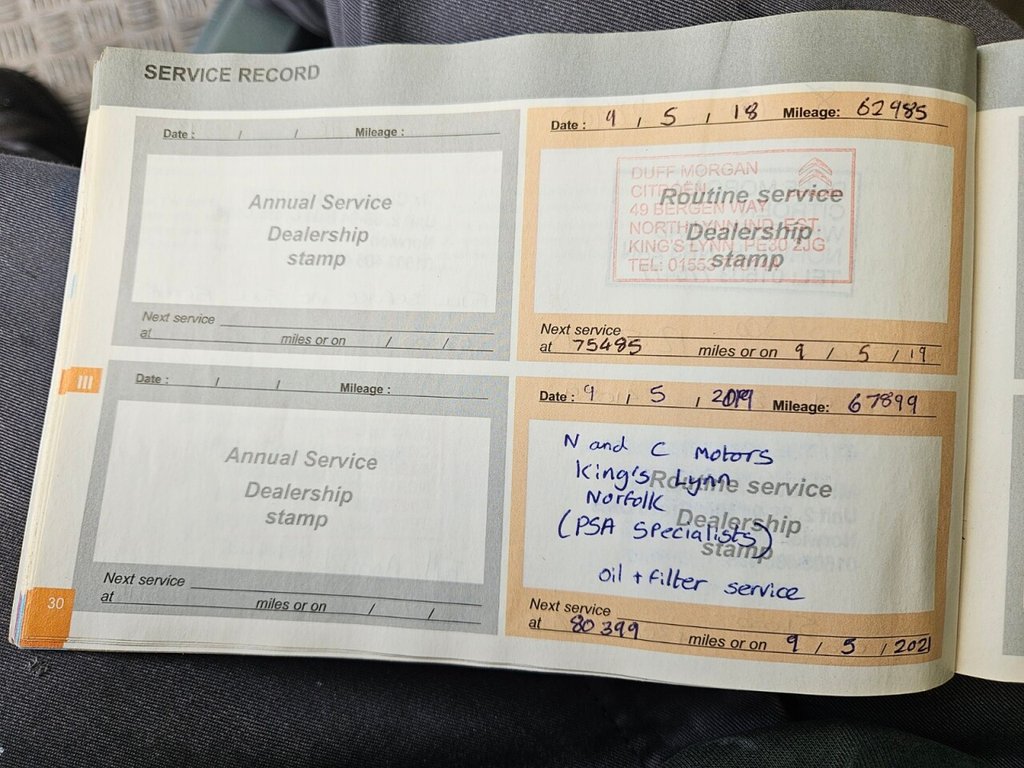 SERVICE RECORD
Date : / / Mileage :
Annual Service
Dealership
stamp
Next service
at miles or on / /
Date : 9 / 5 / 18 Mileage: 62985
DUFF MORGAN
CITROEN
49 BERGEN WAY
NORTH LYNN IND. EST.
KING'S LYNN PE30 2JG
TEL: 01553
Routine service
Dealership
stamp
Next service
at 75485 miles or on 9 / 5 / 19
III
Date : / / Mileage :
Annual Service
Dealership
stamp
Next service
at miles or on / /
Date : 9 / 5 / 2019 Mileage: 67899
N and C Motors
King's Lynn
Norfolk
(PSA Specialists)
oil + filter service
Routine service
Dealership
stamp
Next service
at 80399 miles or on 9 / 5 / 2021
30